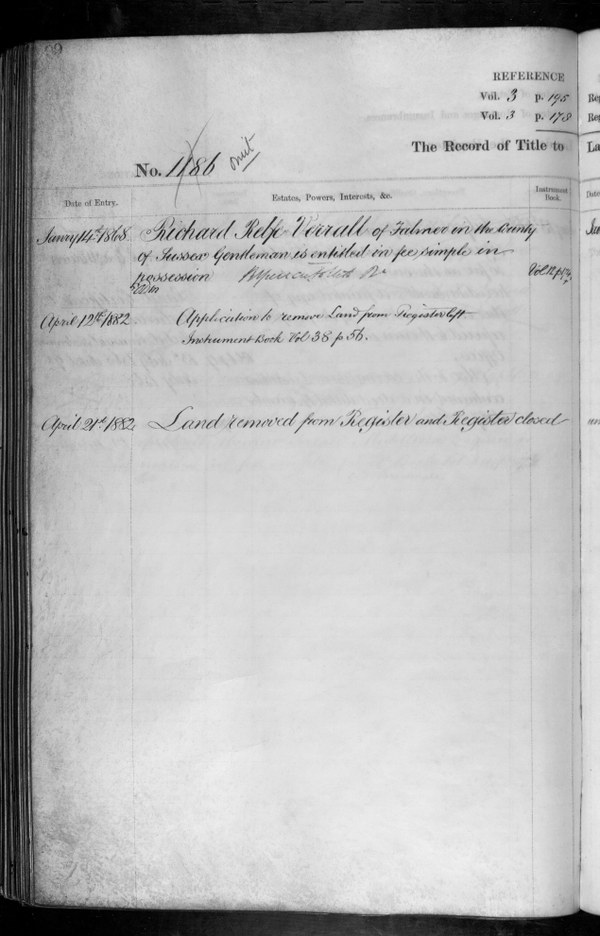 REFERENCE
Vol. 3 p. 195
Vol. 3 p. 178
The Record of Title to
No. 1186 omit
Date of Entry.
Estates, Powers, Interests, &c.
Instrument Book.
Janry 14th 1868
Richard Relfe Verrall of Falmer in the County
of Sussex Gentleman is entitled in fee simple in
possession
Vol 12 p
April 12th 1882.
Application to remove Land from Register left
Instrument Book Vol 38 p 56.
April 21st 1882
Land removed from Register and Register closed